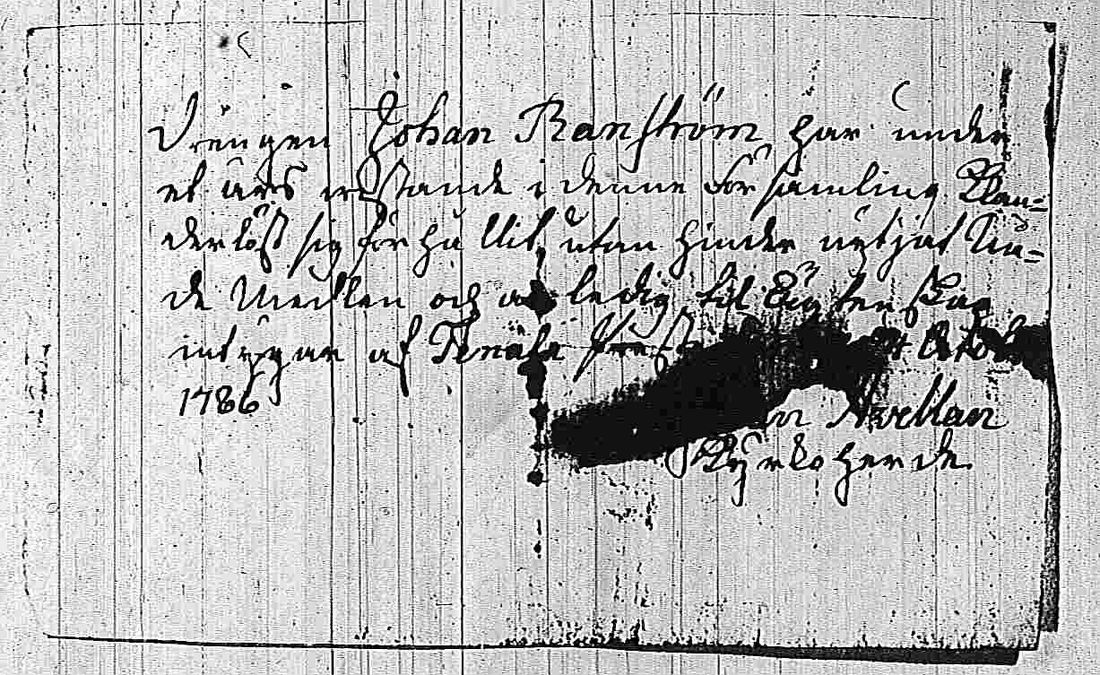 Drengen Johan Ranström har under
et års vistande i denne Församling Klan=
derlöst sig förhållit, utan hinder nytjat Nå=
de Medlen och är ledig til Ägtenskap
intygar af Prest Octob
1786
Avellan
Kyrkoherde.